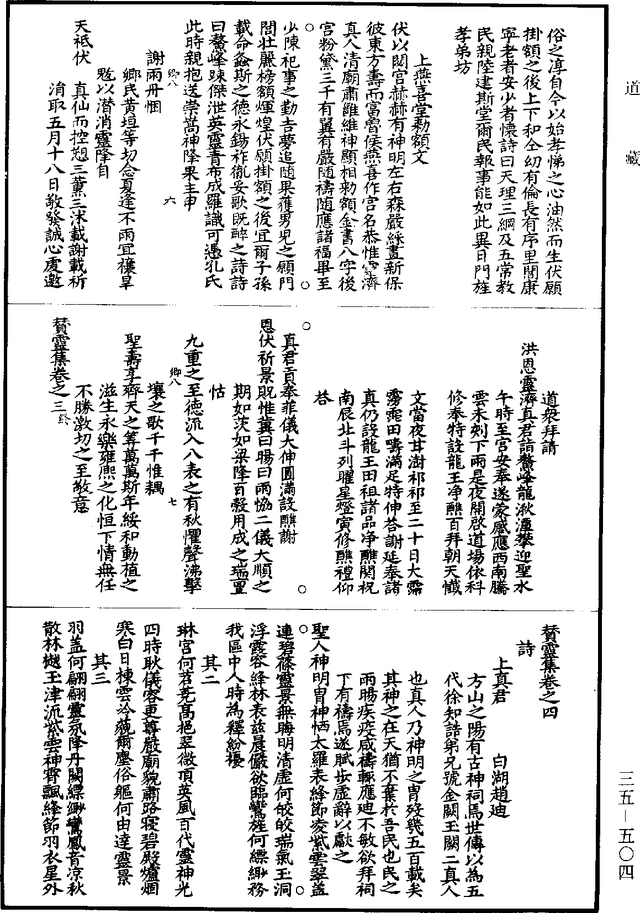 道藏
俗之淳自今以始孝悌之心油然而生伏願
掛額之後上下和全幼有倫長有序里閭康
寧老者安少者懷詩曰天理三綱及五常教
民親陸建斯堂爾民報事能如此異日門旌
孝弟坊
上燕喜堂勑額文
伏以閟宫赫赫有神明左右森嚴綵畫新保
彼東方壽而富魯侯燕喜作宮名恭惟靈濟
真人清廟肅雍維神顯相勑額金書八字後
宫粉黛三千有翼有嚴隨禱隨應諸福畢至
少陳祀事之勤吉夢追隨果獲男兒之願門
閭壯麗榜額煇煌伏願掛額之後宜爾子孫
載命螽斯之德永錫祚胤妥歌既醉之詩詩
曰鰲峰疎傑泄英靈青布成羅識可憑孔氏
此時親抱送崇嵩神降果生申
謝雨丹悃
鄉民黄垣等切念夏逢不雨宜穰旱
魃以潛消靈降自
天祗伏　真仙而控愬三薰三沐載謝載祈
涓取五月十八日敬發誠心虔邀
道衆拜請
洪恩靈濟真君詣鰲峰龍湫潭攀迎聖水
午時至宫安奉遂蒙感應西南騰
雲未刻下雨是夜開啓道場依科
修奉特設龍王净醮百拜朝天懺
文當夜甘澍祁祁至二十日大霈
霶霈田疇滿足特伸荅謝延奉諸
真仍設龍王田祖諸品净醮関祝
南辰北斗列曜星燈寅修醮禮仰
荅
真君貢奉菲儀大伸圓滿設醮謝
恩伏祈景貺惟冀曰暘曰雨協二儀大順之
期如茨如梁降百穀用成之瑞置
怙
九重之至德流入八表之有秋懼聲沸擊
壤之歌千千惟耦
聖壽享齊天之筭萬萬斯年綏和動植之
滋生永樂雍熙之化恒下情無任
不勝激切之至敬意
贊靈集卷之三
贊靈集卷之四
詩
上真君　白湖趙迪
方山之陽有古神祠焉世傳以為五
代徐知誥弟兄號金闕玉闕二真人
也真人乃神明之胄歿幾五百載矣
其神之在天猶不棄於吾民也民之
雨暘疾疫咸禱輒應迪不敏欲拜祠
下有禱焉遂賦步虛辭以獻之
聖人神明胄神栖太羅表絳節凌紫雲翠蓋
連碧篠靈景無晦明清虛何皎皎瑞氣玉洞
浮霞容絳林表玆晨儼欲臨鸞旌何縹緲務
我區中人時為釋紛擾
其二
琳宫何苕堯高挹翠微頂英風百代靈神光
四時耿儀容更尊嚴廟貌肅路寝碧殿爐烟
寒白日棟雲冷藐爾塵俗軀何由達靈景
其三
羽盖何翩翩靈氛降丹闕縹緲鸞鳳音凉秋
散林樾玉津流紫雲神霄飄絳節羽衣星外
三五—五〇四